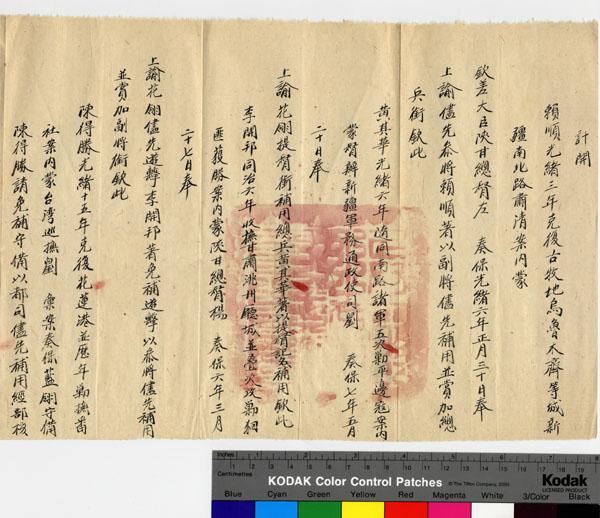 計開
賴順光緒三年克復古牧地烏魯木齊等城新
疆南北路肅清案內蒙
欽差大臣陝甘總督左 奏保光緒六年正月三十日奉
上諭儘先參將賴順著以副將儘先補用並賞加總
兵銜欽此
黃其華光緒六年隨同南路諸軍五次勦平邊寇案內
蒙督辦新疆軍務通政使司劉 奏保七年五月
二十日奉
上諭花翎提督銜補用總兵黃其華著以提督記名補用欽此
李開邦同治六年收撫甘肅洮州廳城並疊次攻勦捻
匪獲勝案內蒙陝甘總督楊 奏保六年三月
二十七日奉
上諭花翎儘先遊擊李開邦著免補遊擊以參將儘先補用
並賞加副將銜欽此
陳得勝光緒十五年克復花蓮港並歷年勦撫番
社案內蒙台灣巡撫劉 彙案奏保藍翎守備
陳得勝請免補守備以都司儘先補用經部核
Inches
Centimetres
KODAK Color Control Patches
© The Tiffen Company, 2000
Kodak
LICENSED PRODUCT
Blue Cyan Green Yellow Red Magenta White 3/Color Black